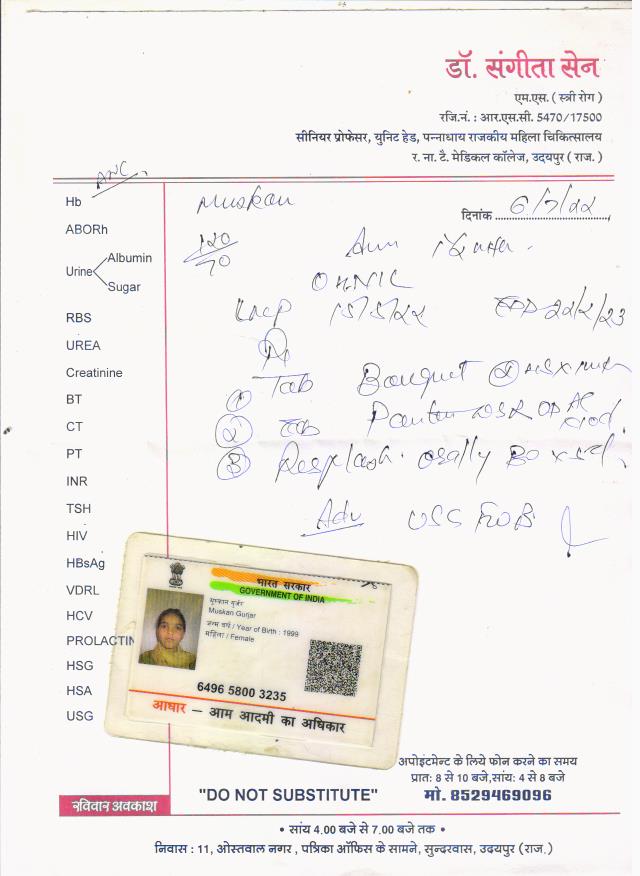 डॉ. संगीता सेन
एम.एस. ( स्त्री रोग )
रजि.नं. : आर.एस.सी. 5470/17500
सीनियर प्रोफेसर, युनिट हेड, पन्नाधाय राजकीय महिला चिकित्सालय
र. ना. टै. मेडिकल कॉलेज, उदयपुर ( राज. )
ANC
Hb
Muskan
दिनांक 6/7/22
ABORh
120/70
Urine Albumin
Sugar
RBS
LMP 15/5/22 EDD 22/2/23
UREA
Rx
Creatinine
① Tab
BT
② Tab
CT
PT
③ orally
INR
TSH
Adv USG
HIV
HBsAg
VDRL
HCV
PROLACTIN
HSG
HSA
USG
भारत सरकार
GOVERNMENT OF INDIA
मुस्कान गुर्जर
Muskan Gurjar
जन्म वर्ष / Year of Birth : 1999
महिला / Female
6496 5800 3235
आधार – आम आदमी का अधिकार
अपोइंटमेन्ट के लिये फोन करने का समय
प्रातः 8 से 10 बजे,सांयः 4 से 8 बजे
मो. 8529469096
"DO NOT SUBSTITUTE"
रविवार अवकाश
• सांय 4.00 बजे से 7.00 बजे तक •
निवास : 11, ओस्तवाल नगर , पत्रिका ऑफिस के सामने, सुन्दरवास, उदयपुर (राज.)